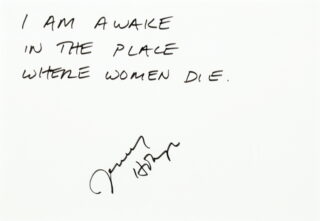 I AM AWAKE
IN THE PLACE
WHERE WOMEN DIE.
Jenny Holzer